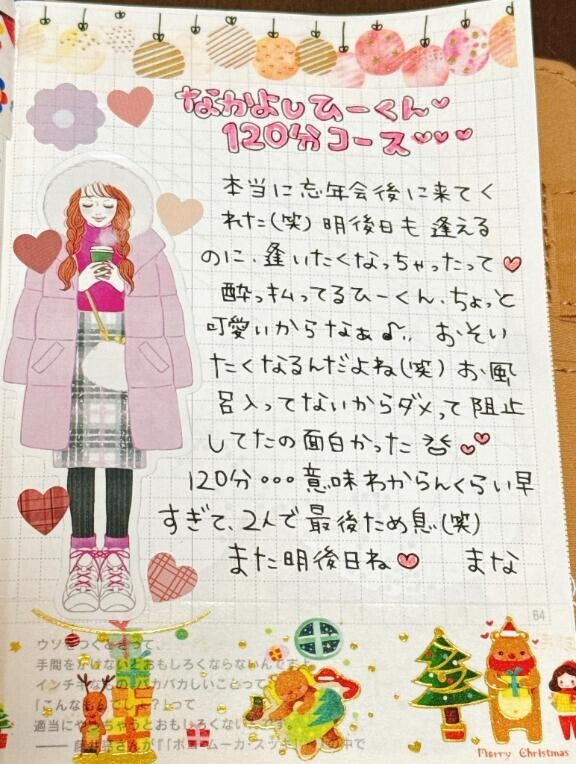 なかよしひーくん♡
120分コース♡♡♡
本当に忘年会後に来てく
れた(笑)明後日も逢える
のに、逢いたくなっちゃったって♥
酔っ払ってるひーくん、ちょっと
可愛いからなぁ♪,, おそい
たくなるんだよね(笑)お風
呂入ってないからダメって阻止
してたの面白かった
120分・・・意味わからんくらい早
すぎて、2人で最後ため息(笑)
また明後日ね♥ まな
64
ウソをつくとき
手間をかけないとおもしろくならないんです
インチキな バカバカしいことって
「こんなもんでしょ?」って
適当にやっちゃうとおもしろくない
Merry Christmas